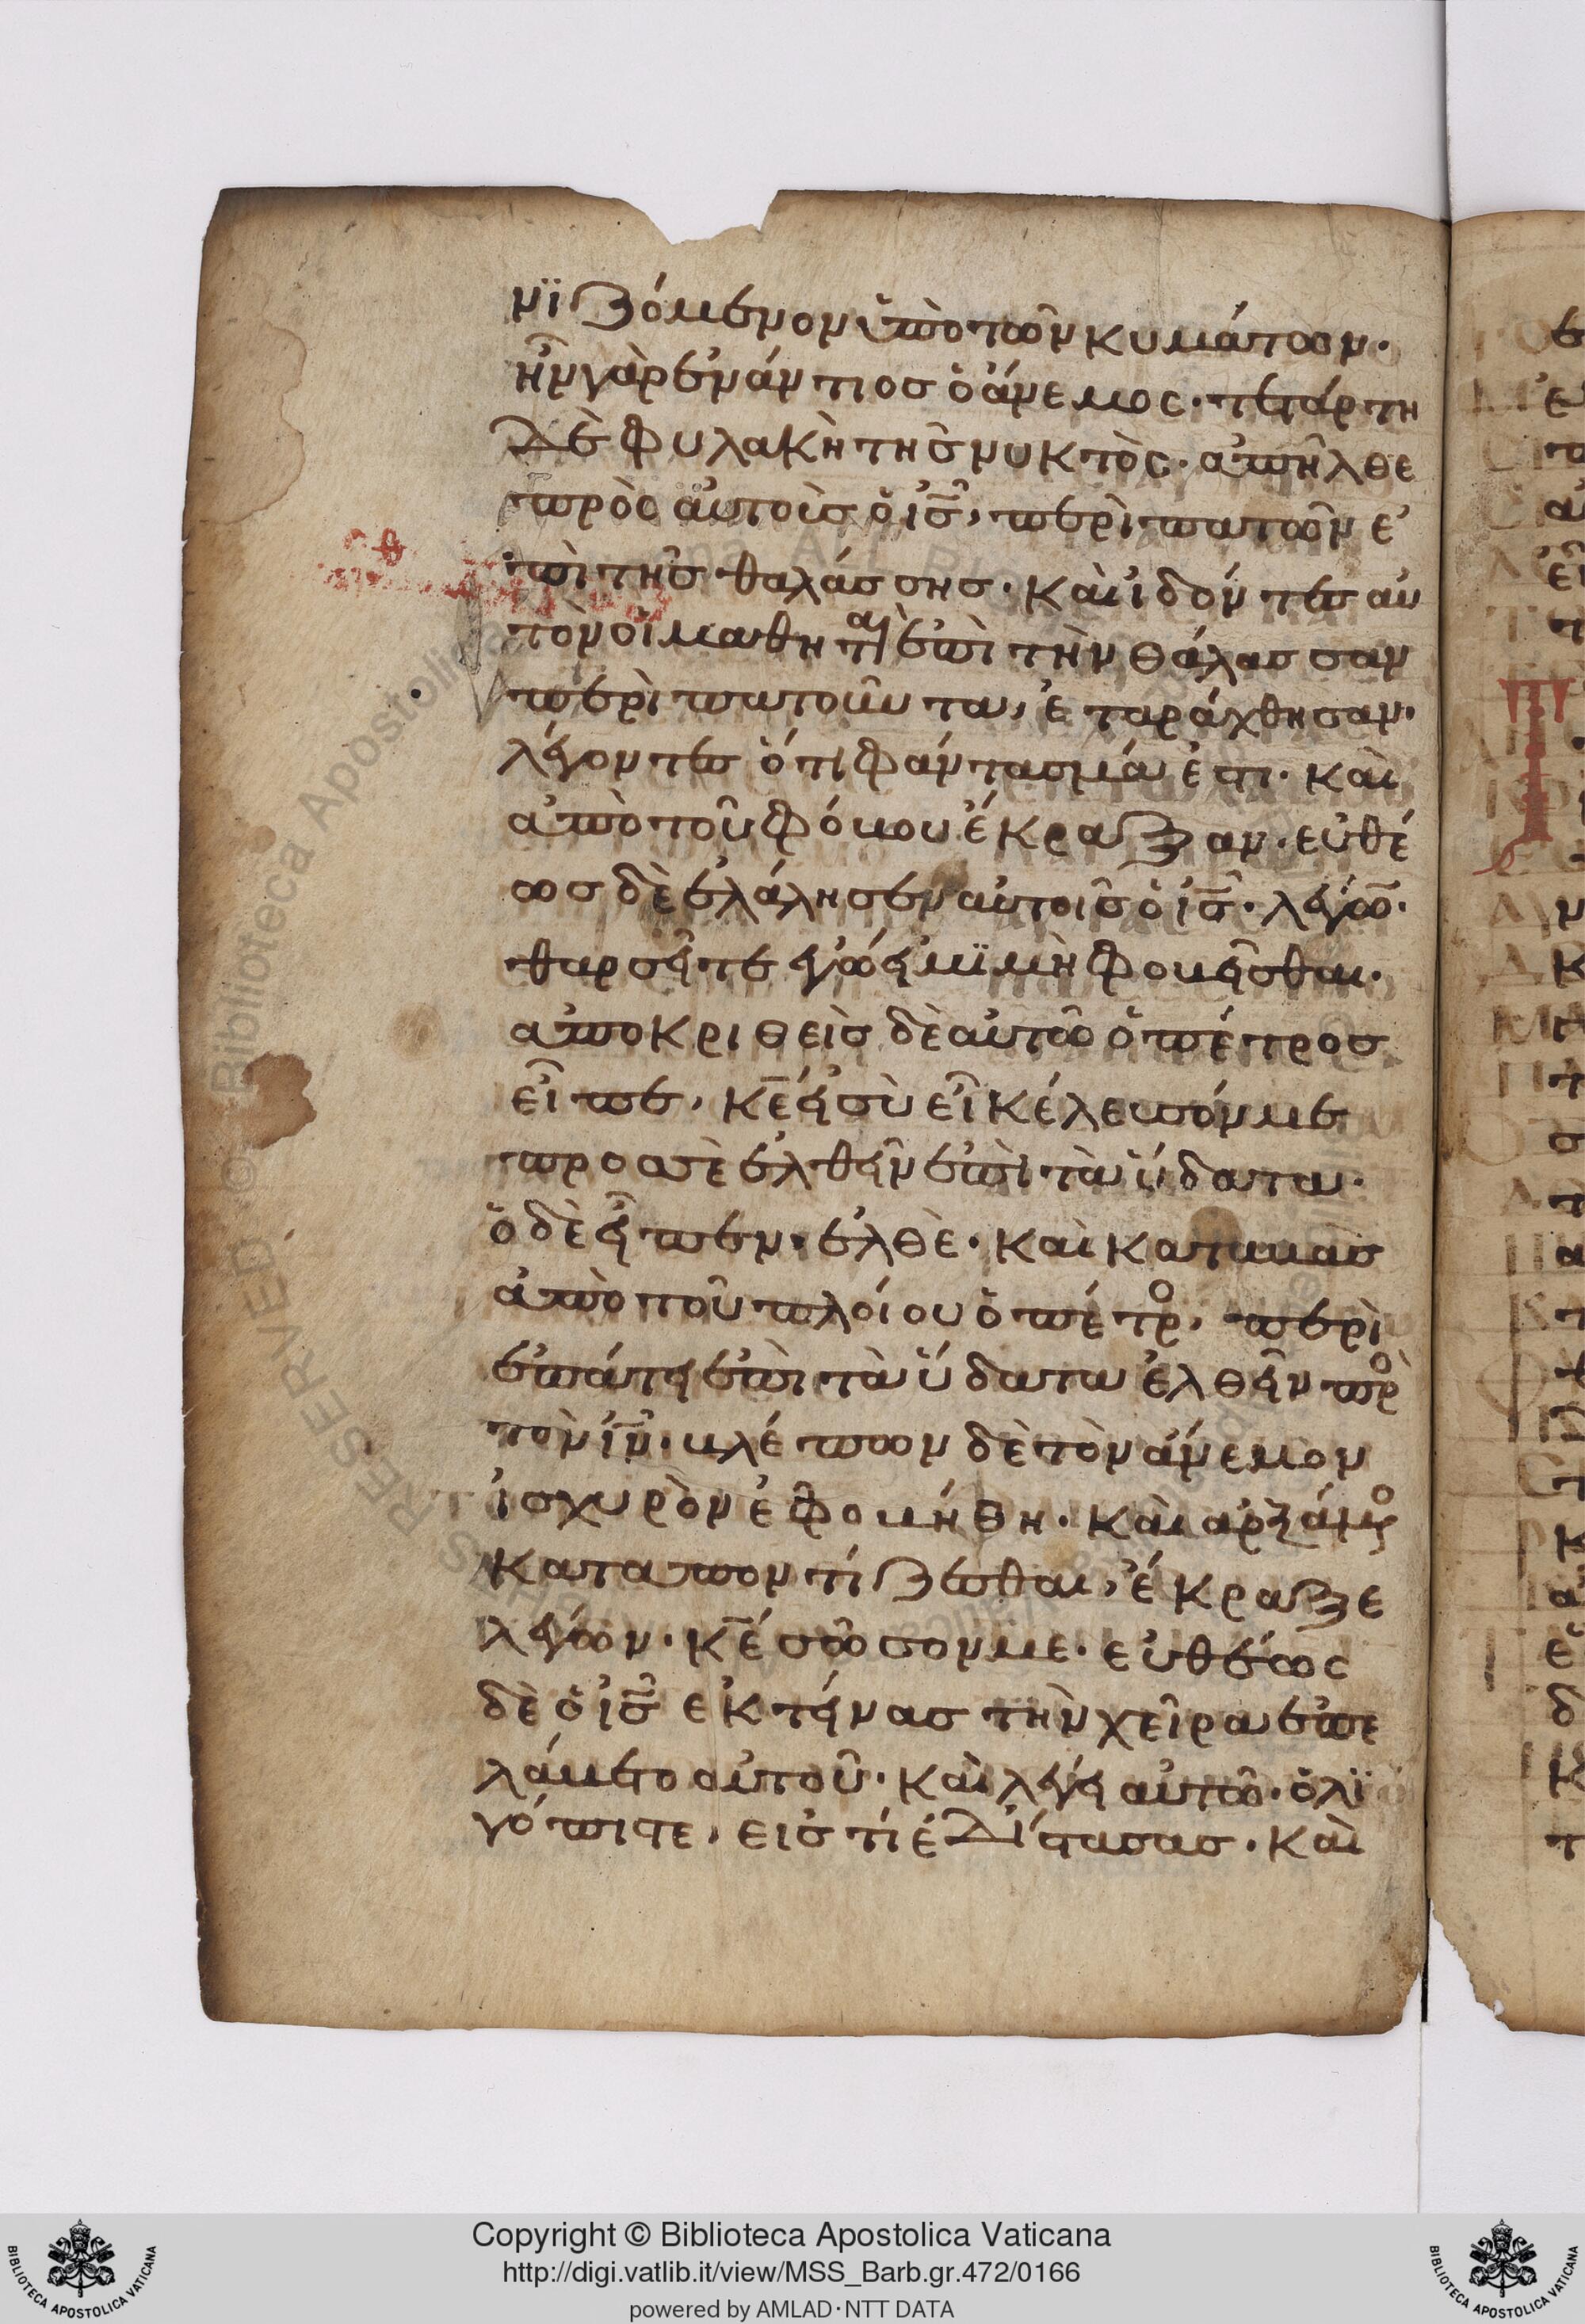 νϊζόμενον ὑπὸ τῶν κυμάτων·
ἦν γὰρ ἐνάντιος ὁ ἄνεμος· τετάρτη
δὲ φυλακὴ τῆς νυκτὸς· ἀπῆλθε
πρὸς αὐτοὺς ὁ ις, περὶπατῶν ἐ
πὶ τῆς θαλάσσης· καὶ ἰδόντες αὐ
τὸν οἱ μαθηταὶ ἐπὶ τὴν θάλασσαν
περὶπατοῦντα, ἐταράχθησαν·
λέγοντες ὅτι φάντασμά ἐστι· καὶ
ἀπὸ τοῦ φόβου ἔκραξαν· εὐθέ
ως δὲ ἐλάλησεν αὐτοῖς ὁ ις· λέγω·
θαρσεῖτε ἐγώ εἰμϊ μὴ φοβεῖσθαι·
ἀποκριθεὶς δὲ αὐτῶ ὁ πέτρος
εἶπε, κε εἰ σὺ εἶ κέλευσόν με
προσὲ ἐλθεῖν ἐπὶ τὰ ὕδατα·
ὁ δὲ εἶπεν· ἐλθὲ· καὶ καταβὰς
ἀπὸ τοῦ πλοίου ὁ πέτρο, περὶ
επάτει ἐπὶ τὰ ὕδατα ἐλθεῖν πρὸ
τὸν ιν· βλέπων δὲ τὸν ἄνεμον
ἰσχυρὸν ἐφοβήθη· καὶ ἀρξάμενο
καταποντίζεσθαι, ἔκραξε
λέγων· κε σῶσον με· εὐθέως
δὲ ὁ ις ἐκτείνας τὴν χεῖρα ἐπε
λάβετο αὐτοῦ· καὶ λέγει αὐτῶ· ὀλϊ
γόπιστε, εἰς τί ἐδίστασας· καὶ
Copyright © Biblioteca Apostolica Vaticana
http://digi.vatlib.it/view/MSS_Barb.gr.472/0166
powered by AMLAD·NTT DATA